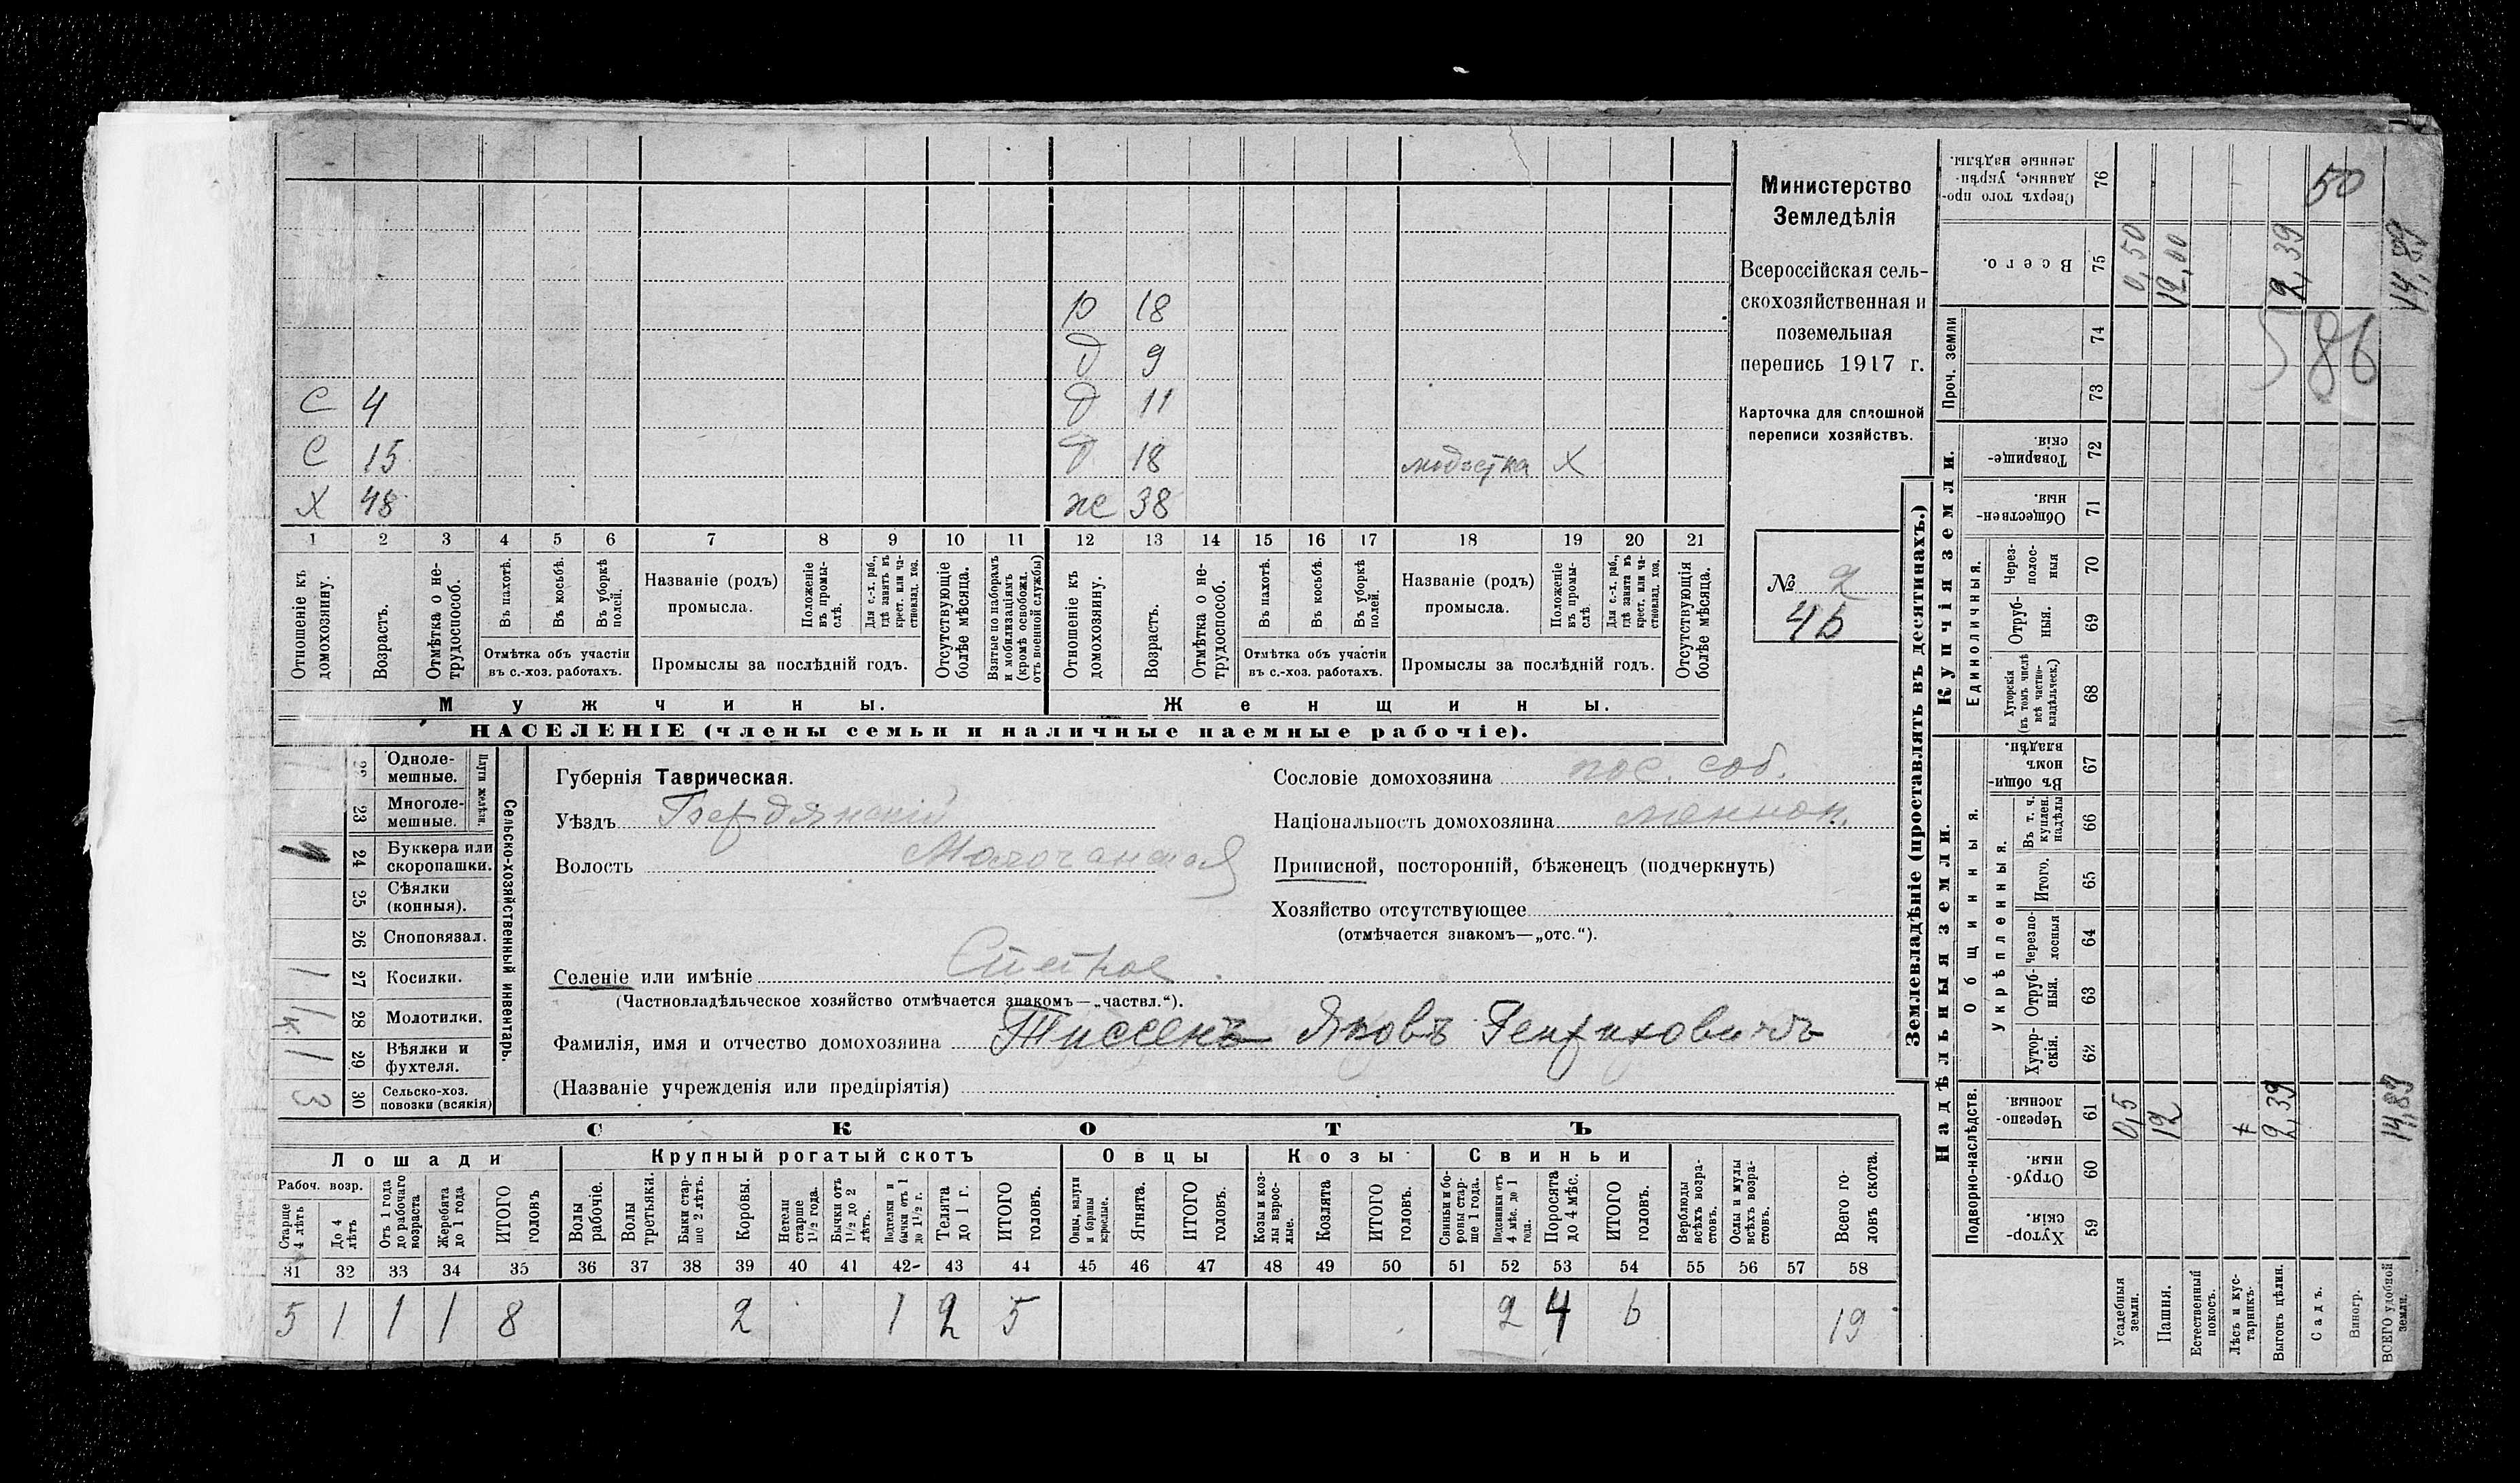 р 18
д 9
С 4 д 11
С 15 д 18 модистка Х
Х 48 ж 38
1 2 3 4 5 6 7 8 9 10 11 12 13 14 15 16 17 18 19 20 21
Отношеніе къ домохозяину.
Возрастъ.
Отмѣтка о не-
трудоспособ.
Въ пахотѣ.
Въ косьбѣ.
Въ уборкѣ полей.
Отмѣтка объ участіи
въ с.-хоз. работахъ.
Названіе (родъ)
промысла.
Положеніе въ промы-
слѣ.
Для с.-х. раб., гдѣ занятъ въ крест. или ча-
стновлад. хоз.
Промыслы за послѣдній годъ.
Отсутствующіе болѣе мѣсяца.
Взятые по наборамъ и мобилизаціямъ (кромѣ освобожд. отъ военной службы)
Отношеніе къ домохозяину.
Возрастъ.
Отмѣтка о не-
трудоспособ.
Въ пахотѣ.
Въ косьбѣ.
Въ уборкѣ полей.
Отмѣтка объ участіи
въ с.-хоз. работахъ.
Названіе (родъ)
промысла.
Положеніе въ промы-
слѣ.
Для с.-х. раб., гдѣ занята въ крест. или ча-
стновлад. хоз.
Промыслы за послѣдній годъ.
Отсутствующія болѣе мѣсяца.
Мужчины. Женщины.
НАСЕЛЕНІЕ (члены семьи и наличные наемные рабочіе).
Министерство
Земледѣлія
Всероссійская сель-
скохозяйственная и
поземельная
перепись 1917 г.
Карточка для сплошной
переписи хозяйствъ.
№ 2
4Б
Сельско-хозяйственный инвентарь.
Плуги желѣзн.
Одноле-
мешные.
23 Многоле-
мешные.
24 Буккера или
скоропашки.
25 Сѣялки
(конныя).
26 Сноповязал.
1 27 Косилки.
1к 28 Молотилки.
1 29 Вѣялки и
фухтеля.
3 30 Сельско-хоз.
повозки (всякія)
Губернія Таврическая.
Уѣздъ Бердянскій
Волость Молочанская
Селеніе или имѣніе
(Частновладѣльческое хозяйство отмѣчается знакомъ—„частвл.“).
Фамилія, имя и отчество домохозяина Тиссенъ Яковъ Генриховичъ
(Названіе учрежденія или предпріятія)
Сословіе домохозяина пос. соб.
Національность домохозяина меннон.
Приписной, посторонній, бѣженецъ (подчеркнуть)
Хозяйство отсутствующее
(отмѣчается знакомъ—„отс.“).
СКОТЪ
Лошади Крупный рогатый скотъ Овцы Козы Свиньи
Рабоч. возр.
Старше 4 лѣтъ
До 4 лѣтъ
Отъ 1 года до рабочаго возраста
Жеребята до 1 года
ИТОГО головъ
Волы рабочіе.
Волы третьяки.
Быки стар-
ше 2 лѣтъ.
Коровы.
Нетели старше 1½ года.
Бычки отъ 1½ до 2 лѣтъ.
Нетелки и бычки отъ 1 до 1½ г.
Телята до 1 г.
ИТОГО головъ.
Овцы, валухи и бараны взрослые.
Ягнята.
ИТОГО головъ.
Козы и коз-
лы взрос-
лые.
Козлята
ИТОГО головъ.
Свиньи и бо-
ровы стар-
ше 1 года.
Подсвинки отъ 4 мѣс. до 1 года.
Поросята до 4 мѣс.
ИТОГО головъ.
Верблюды всѣхъ возра-
стовъ.
Ослы и мулы всѣхъ возра-
стовъ.
Всего го-
ловъ скота.
31 32 33 34 35 36 37 38 39 40 41 42 43 44 45 46 47 48 49 50 51 52 53 54 55 56 57 58
5 1 1 1 8 2 1 2 5 2 4 6 19
Землевладѣніе (проставлять въ десятинахъ.)
Надѣльныя земли. Купчія земли.
Подворно-наслѣдств.
Общинныя.
Укрѣпленныя.
Единоличныя.
Проч. земли
Хутор-
скія. 59
Отруб-
ныя. 60
Черезпо-
лосныя. 61
Хутор-
скія. 62
Отруб-
ныя. 63
Черезпо-
лосныя 64
Итого. 65
Въ т. ч. куплен. надѣлы 66
Въ общи-
номъ владѣн. 67
Хуторскія (въ томъ числѣ всѣ частно-
владѣльческ.) 68
Отруб-
ныя. 69
Через-
полос-
ныя 70
Обществен-
ныя. 71
Товарище-
скія. 72
73
74
Всего. 75
Сверхъ того про-
данные, укрѣп-
ленные надѣлы. 76
Усадебныя земли. 0,5 0,50
Пашня. 12 12,00
Естественный покосъ.
Лѣсъ и кус-
тарникъ.
Выгонъ цѣлин. 2,39 2,39
Садъ.
Виногр.
ВСЕГО удобной земли. 14,89 14,89
50
586